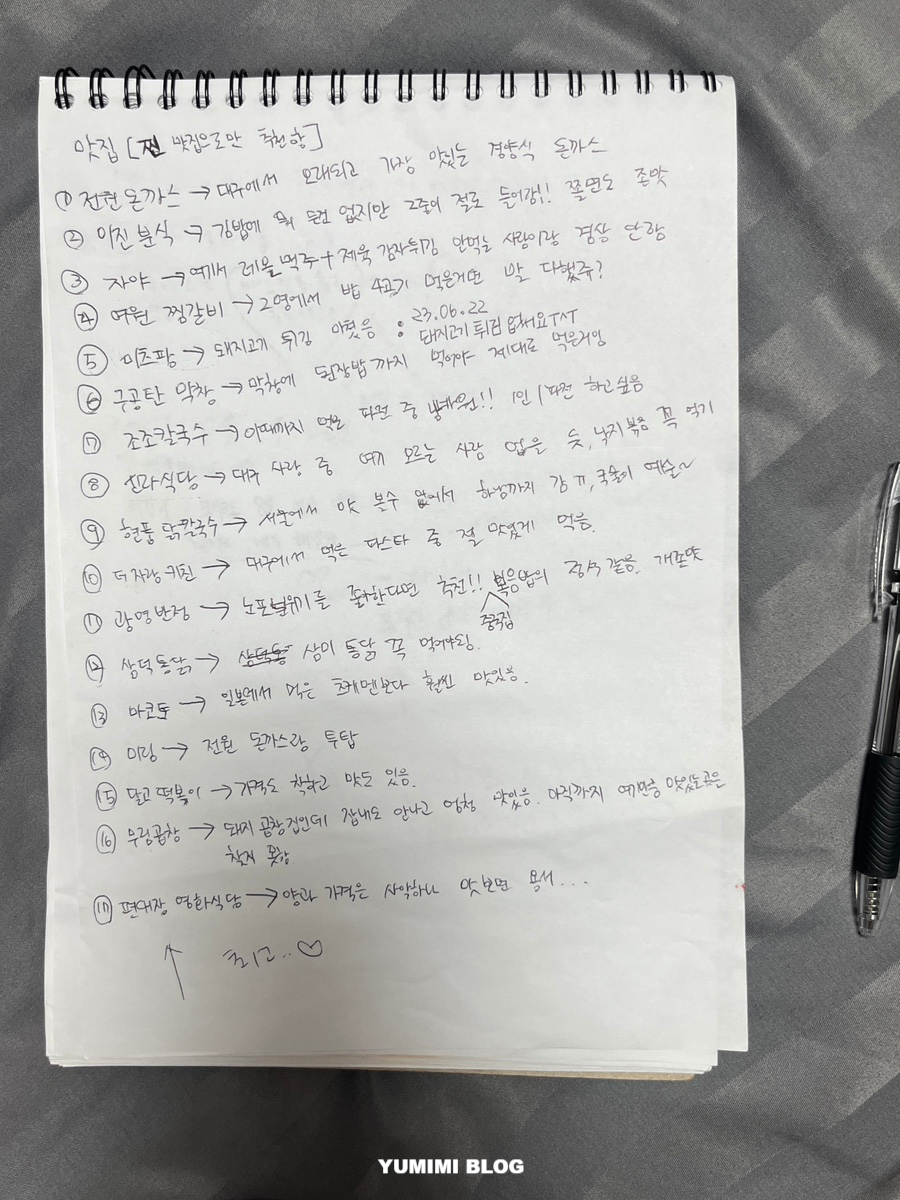 맛집 [찐 맛집으로만 추천함]
① 전원돈까스 → 대구에서 오래되고 가장 맛있는 경양식 돈까스
② 이진분식 → 김밥에 뭐 든건 없지만 2줄이 절로 들어감!! 쫄면도 존맛
③ 자야 → 여기서 레몬맥주 + 제육 감자튀김 안먹는 사람이랑 겸상 안함
④ 여원 찜갈비 → 2명에서 밥 4공기 먹은거면 말 다했쥬?
⑤ 미즈팜 → 돼지고기 튀김 미쳤음 : 23.06.22 돼지고기튀김 없어요TAT
⑥ 구공탄 막창 → 막창에 된장밥까지 먹어야 제대로 먹은거임
⑦ 조조칼국수 → 이때까지 먹은 파전 중 넘버원!! 1인 1파전 하고싶음
⑧ 신라식당 → 대구 사람 중 여기 모르는 사람 없을 듯, 낙지볶음 꼭 먹기
⑨ 현풍 닭칼국수 → 서울에서 맛 본 수 없어서 하남까지 감ㅠ, 국물이 예술~
⑩ 더자람키친 → 대구에서 먹은 파스타 중 젤 맛있게 먹음.
⑪ 광명반점 → 노포분위기를 좋아한다면 추천!! 볶음밥의 정석 같음. 개존맛
중국집
⑫ 삼덕통닭 → 삼미 통닭 꼭 먹어야됨.
⑬ 마코토 → 일본에서 먹은 츠케멘보다 훨씬 맛있음.
⑭ 미림 → 전원 돈까스랑 투탑
⑮ 달고떡볶이 → 가격도 착하고 맛도 있음.
⑯ 우정곱창 → 돼지 곱창집인데 잡내도 안나고 엄청 맛있음. 아직까지 여기만큼 맛있는곳은
찾지 못함
⑰ 편대장 영화식당 → 양과 가격은 사악하나 맛보면 용서...
↑ 최고..♡
YUMIMI BLOG